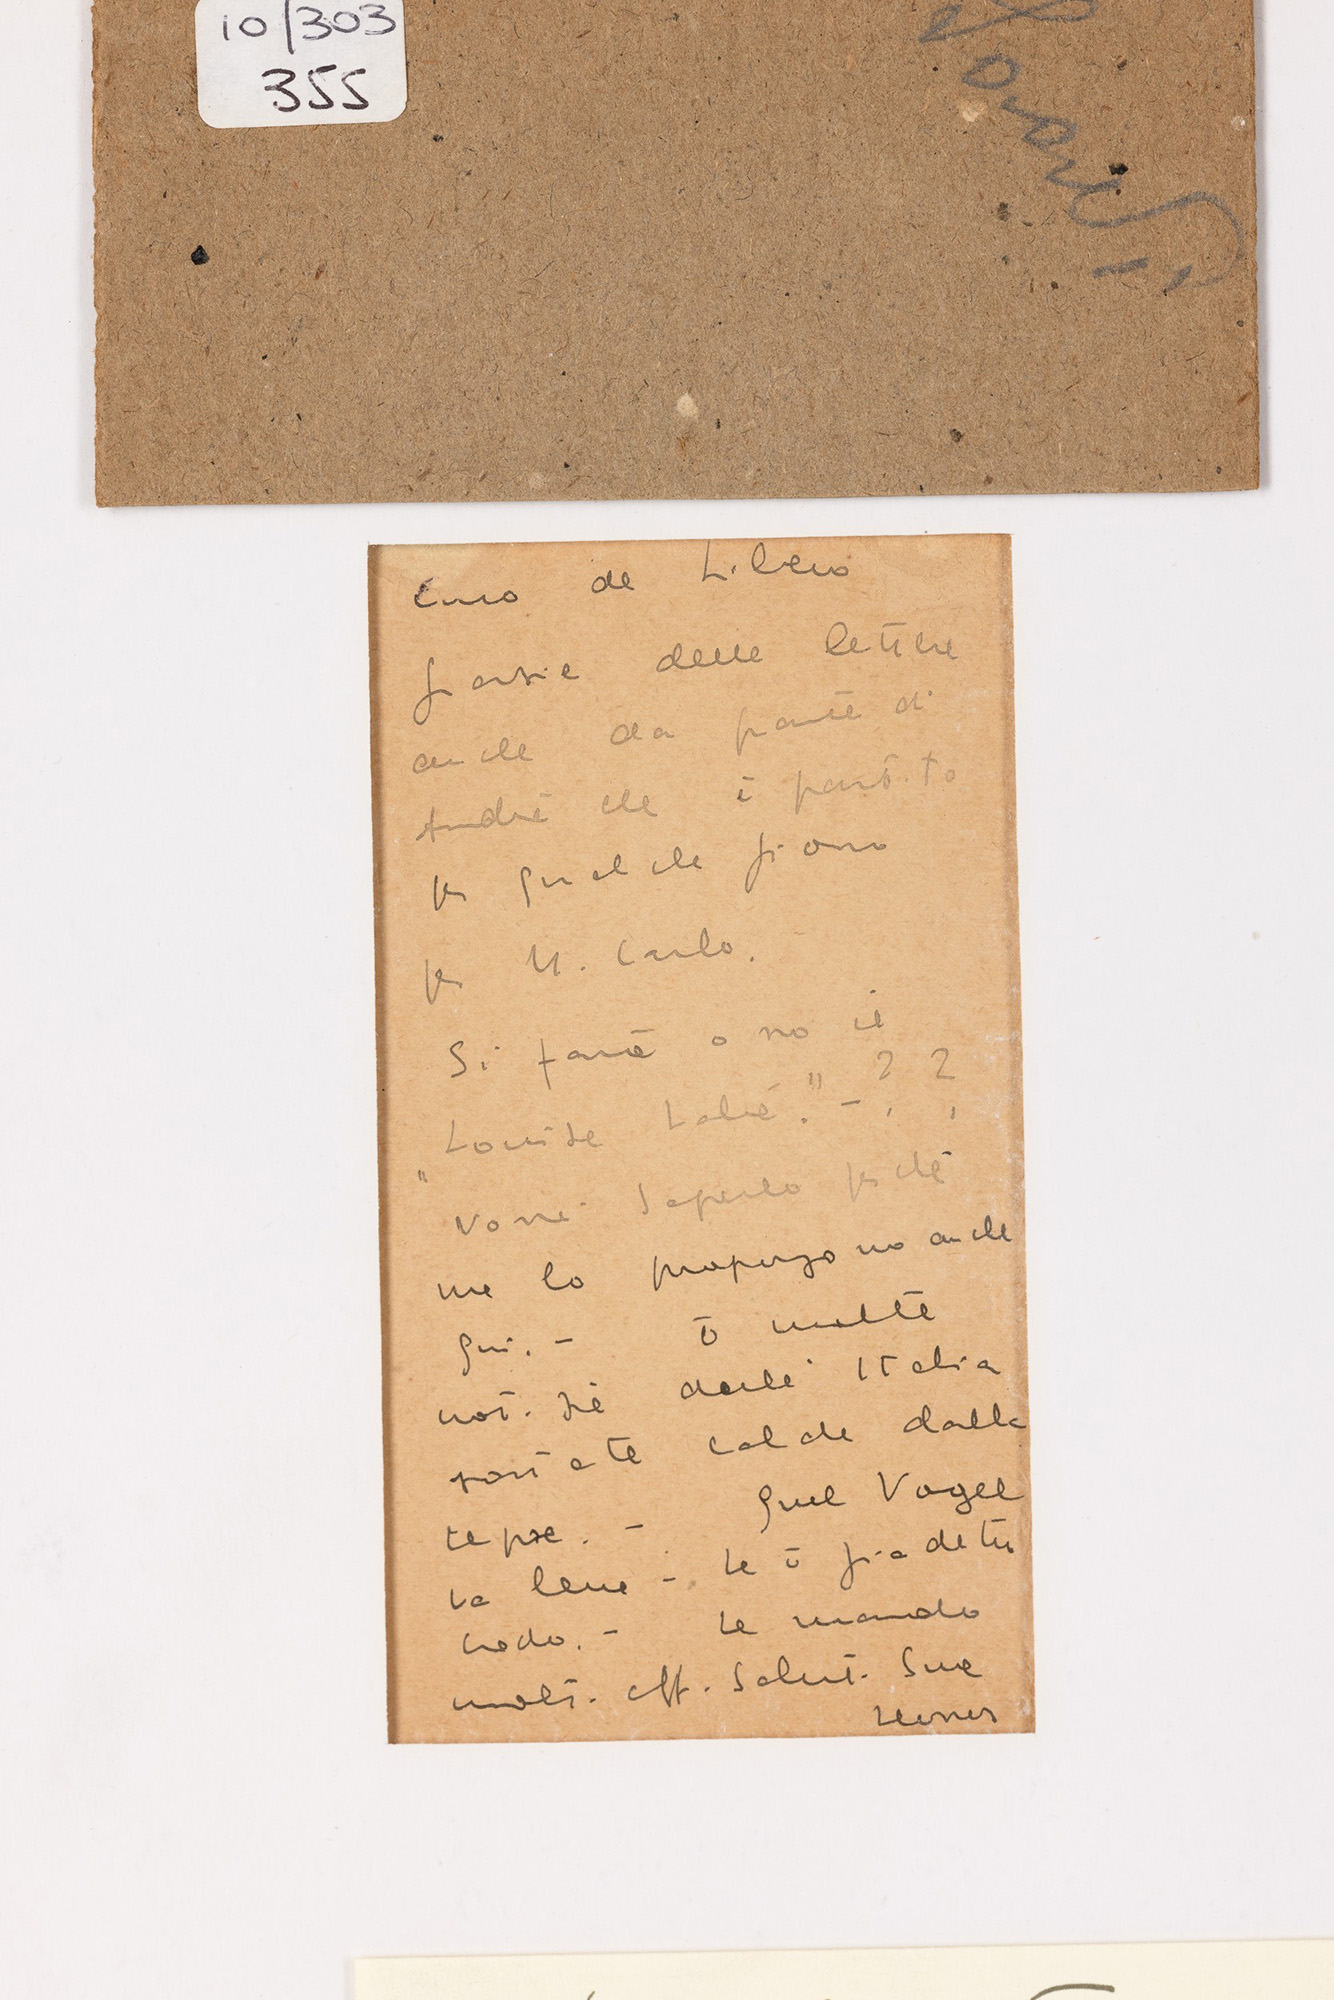 10/303
355
Caro de Libero
grazie delle lettere
anche da parte di
André che è partito
per qualche giorno
per M. Carlo.
Si farà o no il
"Louise Labé."-? ?
Vorrei saperlo perché
me lo propongono anche
qui.- ò molte
notizie dell'Italia
portate calde dalla
Quel Vogel
va bene - Le ò già detto
credo.- Le mando
molti aff. saluti. Sua
Leonor